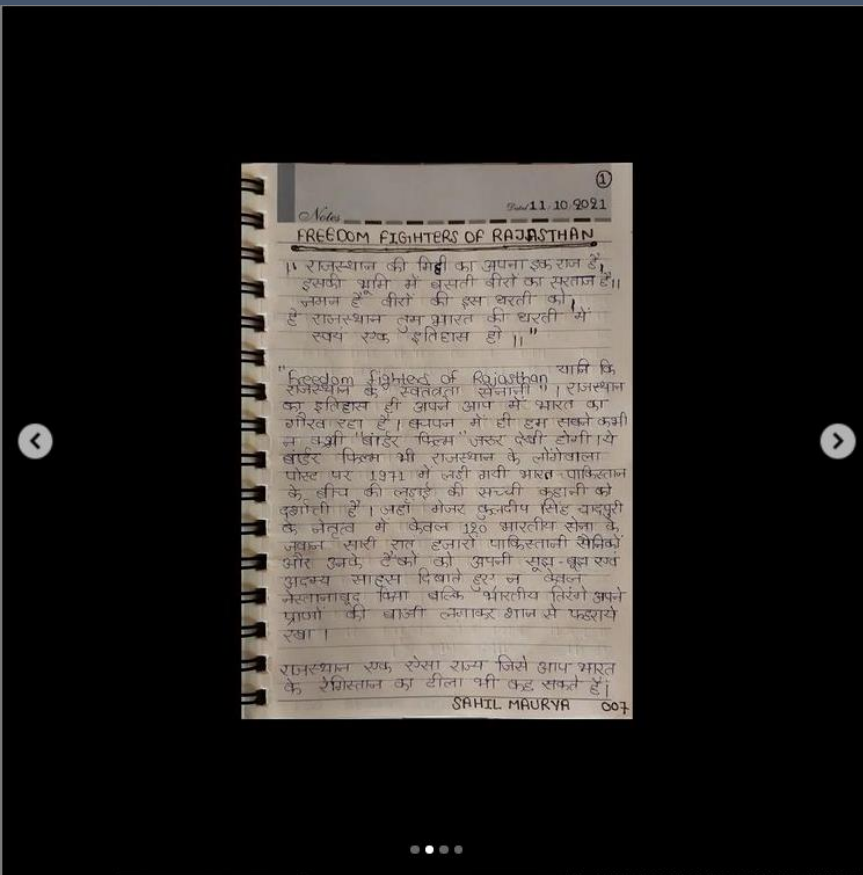 1
Notes
Date 11.10.2021
FREEDOM FIGHTERS OF RAJASTHAN
" राजस्थान की मिट्टी का अपना इक राज है,
इसकी भूमि में बसती वीरों का सरताज है।।
नमन है वीरों की इस धरती को,
हे राजस्थान तुम भारत की धरती में
स्वयं एक इतिहास हो ।। "
" Freedom fighters of Rajasthan यानि कि
राजस्थान के स्वतंत्रता सेनानी "। राजस्थान
का इतिहास ही अपने आप में भारत का
गौरव रहा है। बचपन में ही हम सबने कभी
न कभी "बॉर्डर फिल्म" जरूर देखी होगी। ये
बॉर्डर फिल्म भी राजस्थान के लोंगेवाला
पोस्ट पर 1971 में लड़ी गयी भारत-पाकिस्तान
के बीच की लड़ाई की सच्ची कहानी को
दर्शाती है। जहाँ मेजर कुलदीप सिंह चांदपुरी
के नेतृत्व में केवल 120 भारतीय सेना के
जवान सारी रात हजारों पाकिस्तानी सैनिकों
और उनके टैंकों को अपनी सूझ-बूझ एवं
अदम्य साहस दिखाते हुए न केवल
नेस्तानाबूद किया बल्कि भारतीय तिरंगे अपने
प्राणों की बाजी लगाकर शान से फहराये
रखा।
राजस्थान एक ऐसा राज्य जिसे आप भारत
के रेगिस्तान का टीला भी कह सकते हैं।
SAHIL MAURYA 007